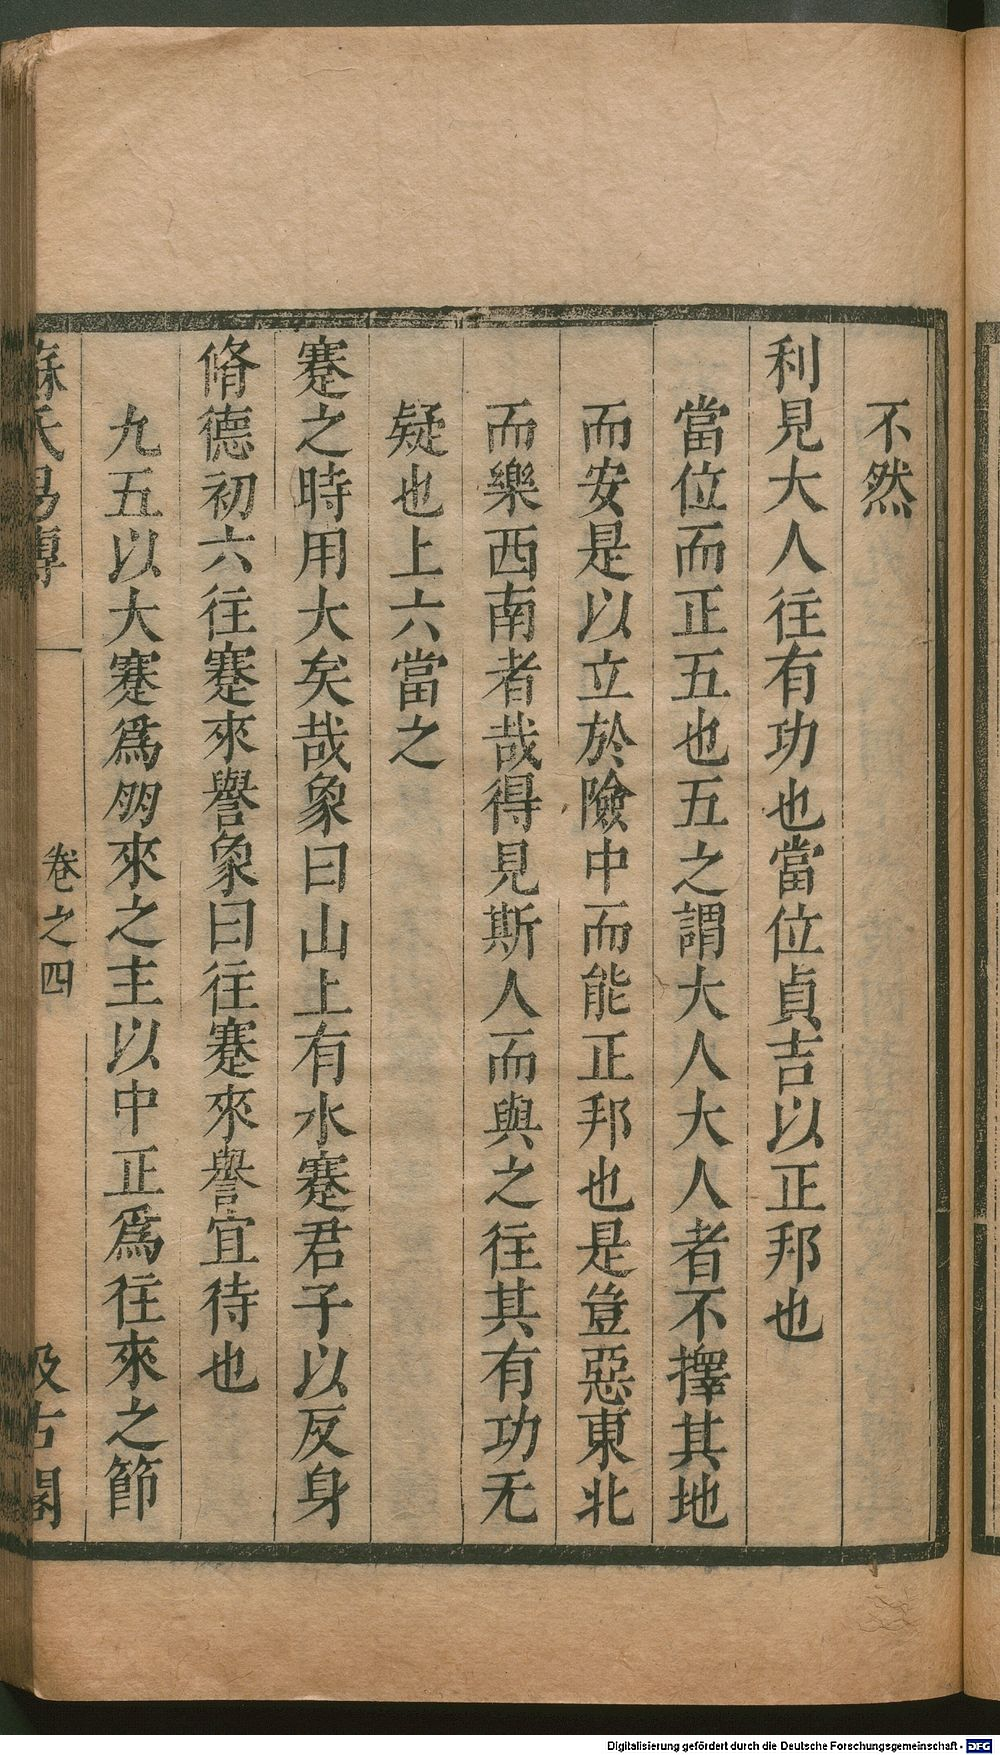 不然
利見大人往有功也當位貞吉以正邦也
當位而正五也五之謂大人大人者不擇其地
而安是以立於險中而能正邦也是豈惡東北
而樂西南者哉得見斯人而與之往其有功无
疑也上六當之
蹇之時用大矣哉象曰山上有水蹇君子以反身
脩德初六往蹇來譽象曰往蹇來譽宜待也
九五以大蹇爲朋來之主以中正爲往來之節
蘇氏易傳
卷之四
汲古閣
Digitalisierung gefördert durch die Deutsche Forschungsgemeinschaft - DFG